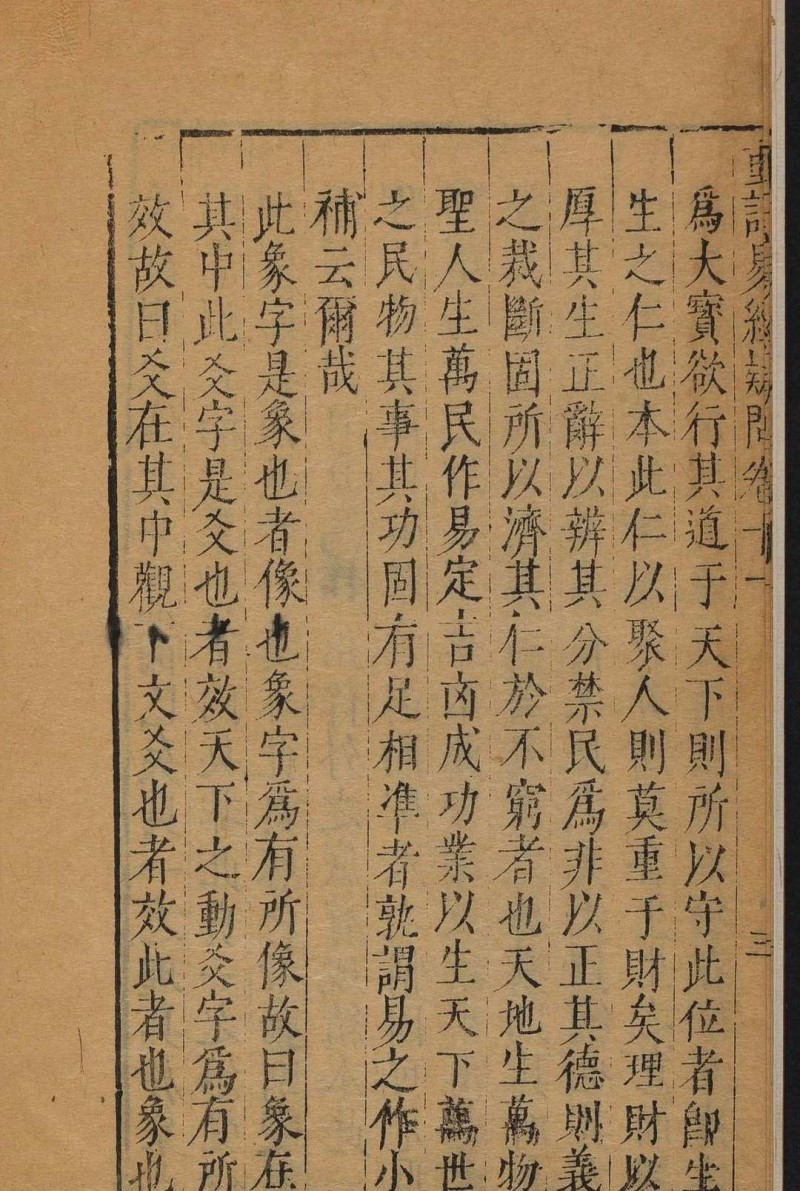 重訂易經疑問卷十一 三
爲大寳欲行其道于天下則所以守此位者卽生
生之仁也本此仁以聚人則莫重于財矣理財以
厚其生正辭以辨其分禁民爲非以正其德則義
之裁斷固所以濟其仁於不窮者也天地生萬物
聖人生萬民作易定吉凶成功業以生天下萬世
之民物其事其功固有足相凖者孰謂易之作小
補云爾哉
此象字是象也者像也象字爲有所像故曰象在
其中此爻字是爻也者效天下之動爻字爲有所
效故曰爻在其中觀下文爻也者效此者也象也